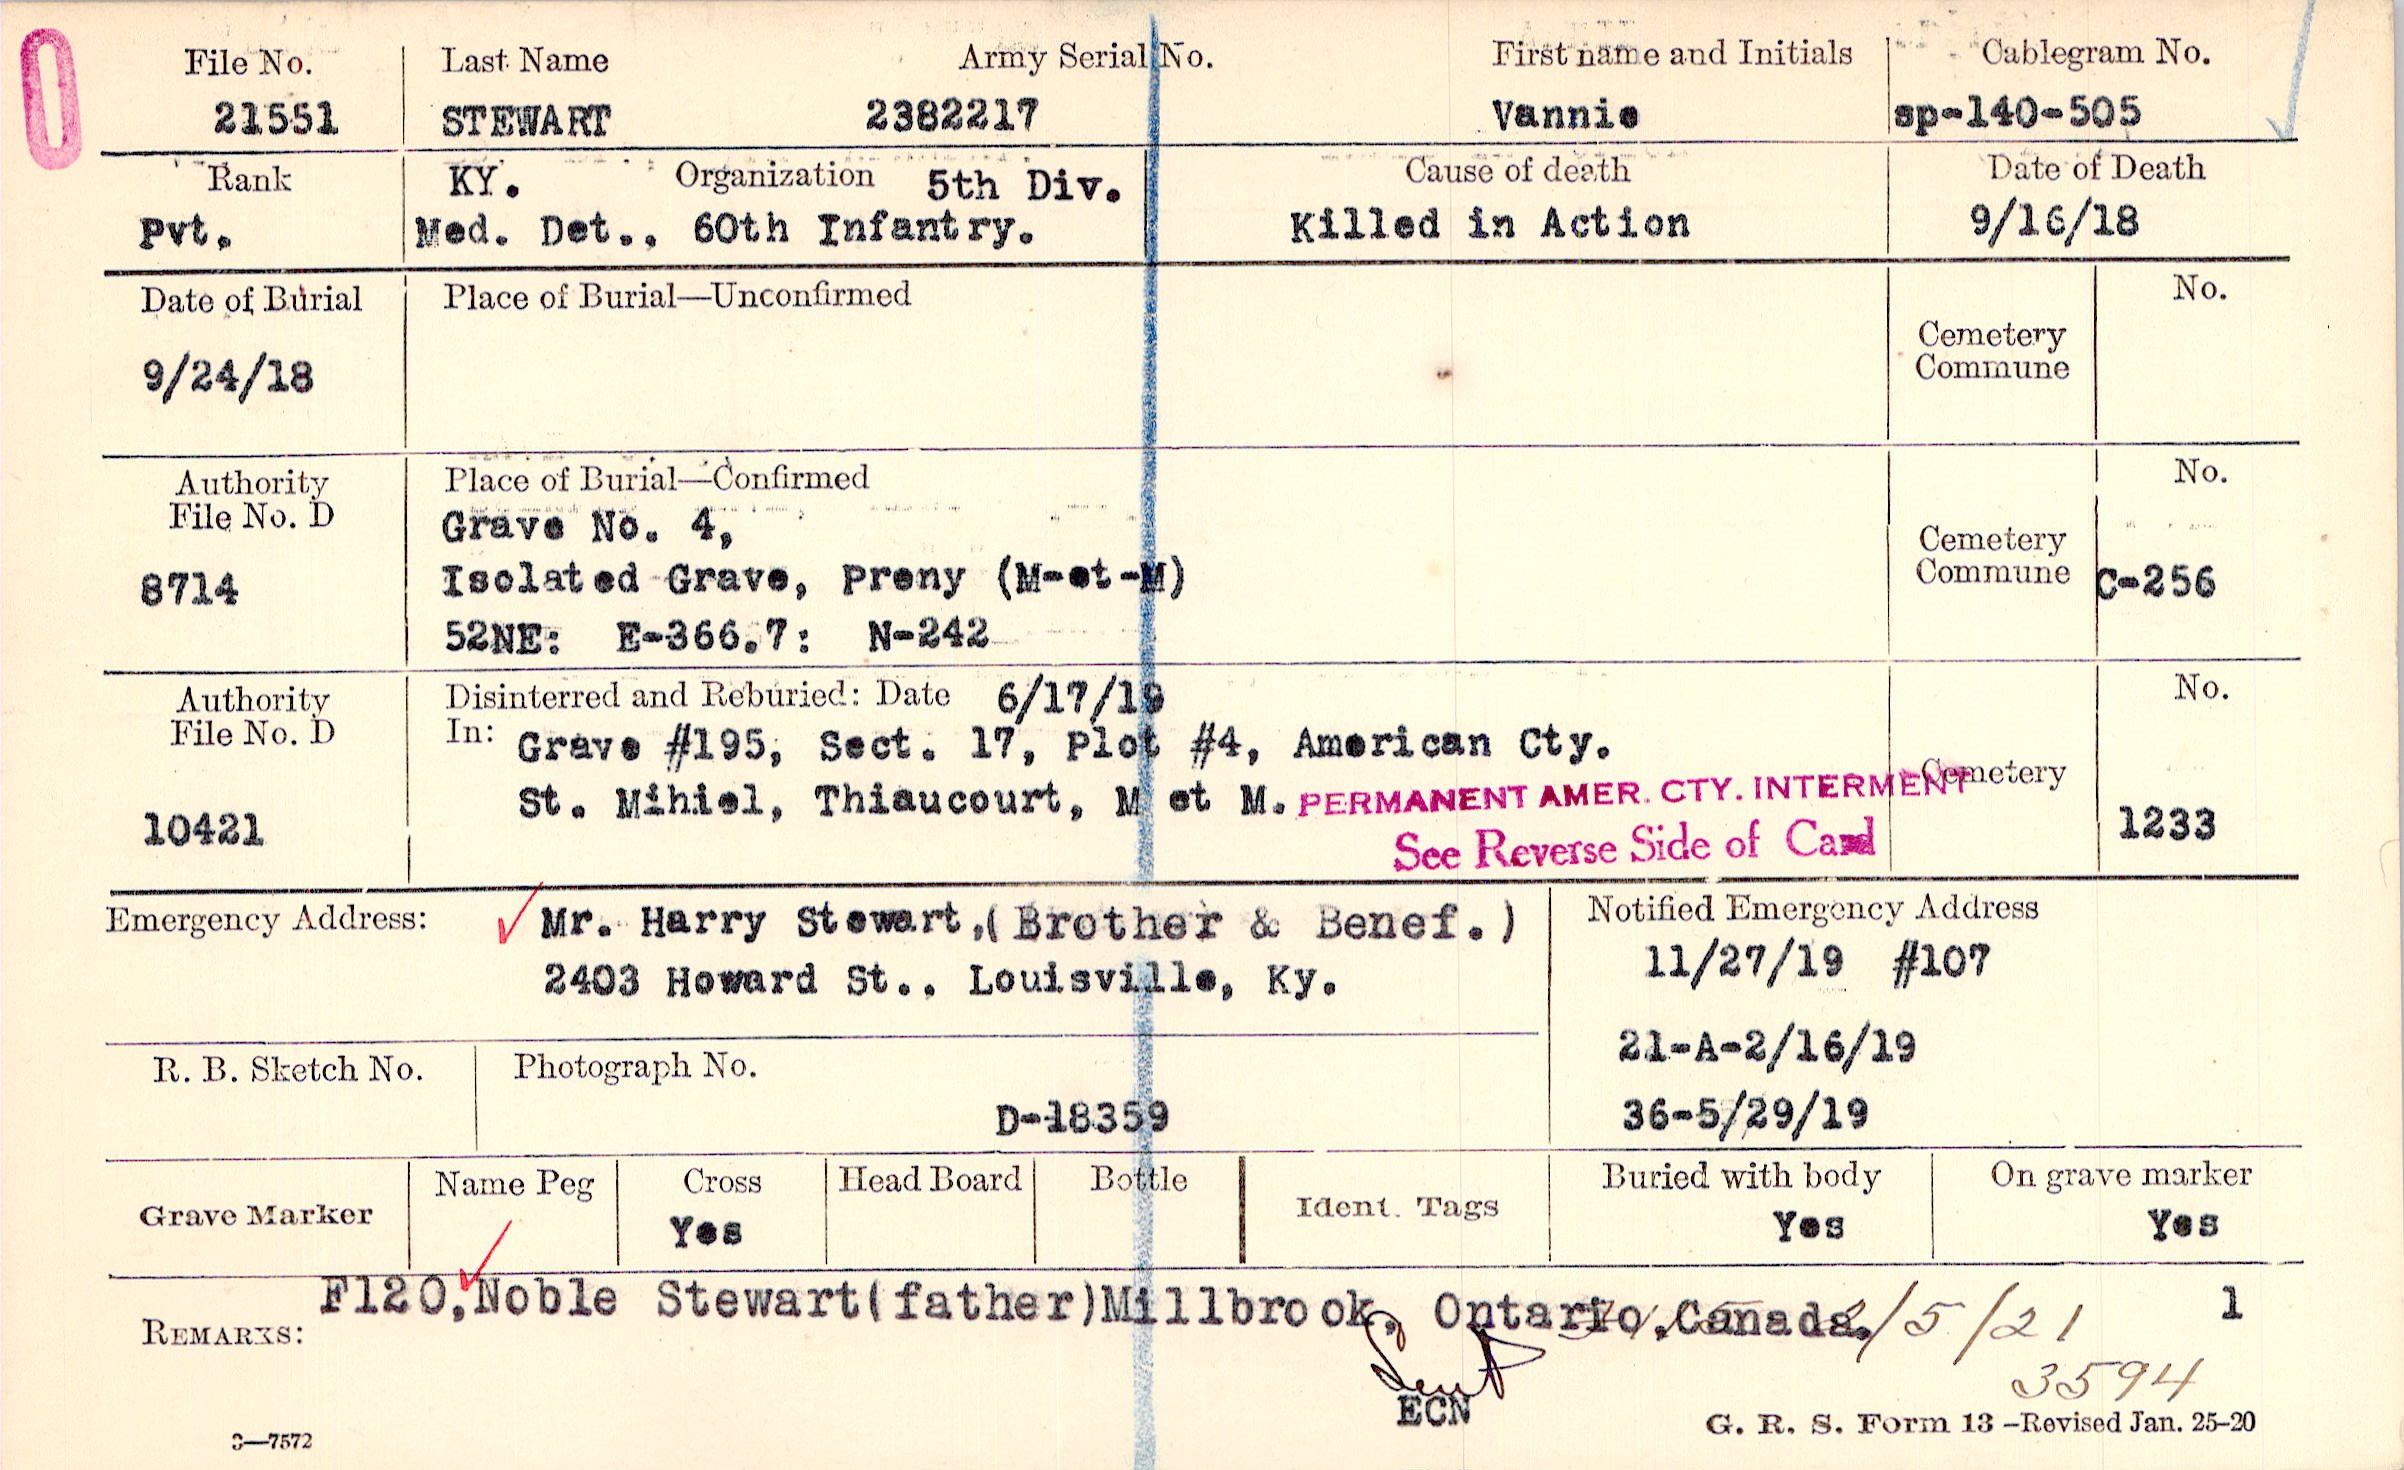 File No. Last Name Army Serial No. First name and Initials Cablegram No.
21551 STEWART 2382217 Vannie sp-140-505
Rank KY. Organization 5th Div. Cause of death Date of Death
Pvt. Med. Det., 60th Infantry. Killed in Action 9/16/18
Date of Burial Place of Burial—Unconfirmed No.
9/24/18 Cemetery
Commune
Authority Place of Burial—Confirmed No.
File No. D Grave No. 4,
8714 Isolated Grave, Preny (M-et-M) Cemetery
Commune C-256
52NE: E-366.7: N-242
Authority Disinterred and Reburied: Date 6/17/19 No.
File No. D In: Grave #195, Sect. 17, Plot #4, American Cty.
St. Mihiel, Thiaucourt, M et M. PERMANENT AMER. CTY. INTERMENT Cemetery
10421 See Reverse Side of Card 1233
Emergency Address: Mr. Harry Stewart,(Brother & Benef.) Notified Emergency Address
2403 Howard St., Louisville, Ky. 11/27/19 #107
21-A-2/16/19
R. B. Sketch No. Photograph No.
D-18359 36-5/29/19
Grave Marker Name Peg Cross Head Board Bottle Ident. Tags Buried with body On grave marker
Yes Yes Yes
REMARKS: F120,Noble Stewart(father)Millbrook, Ontario,Canada. /5/21 1
Sent 3594
ECN
3—7572 G. R. S. Form 13 -Revised Jan. 25-20